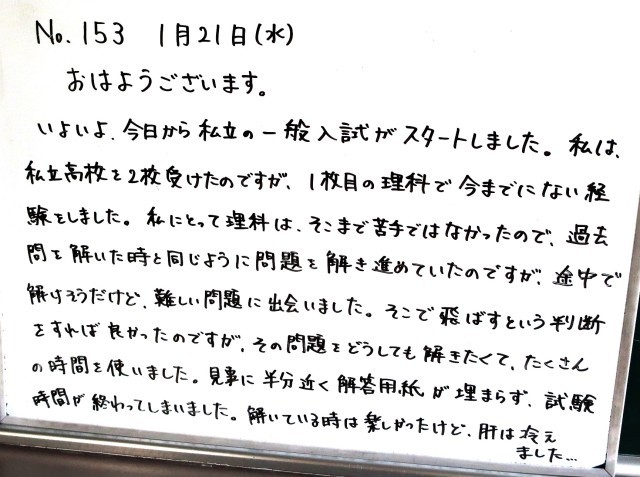 No.153 1月21日(水)
おはようございます。
いよいよ、今日から私立の一般入試がスタートしました。私は、
私立高校を2校受けたのですが、1校目の理科で今までにない経
験をしました。私にとって理科は、そこまで苦手ではなかったので、過去
問を解いた時と同じように問題を解き進めていたのですが、途中で
解けそうだけど、難しい問題に出会いました。そこで飛ばすという判断
をすれば良かったのですが、その問題をどうしても解きたくて、たくさん
の時間を使いました。見事に半分近く解答用紙が埋まらず、試験
時間が終わってしまいました。解いている時は楽しかったけど、肝は冷え
ました…